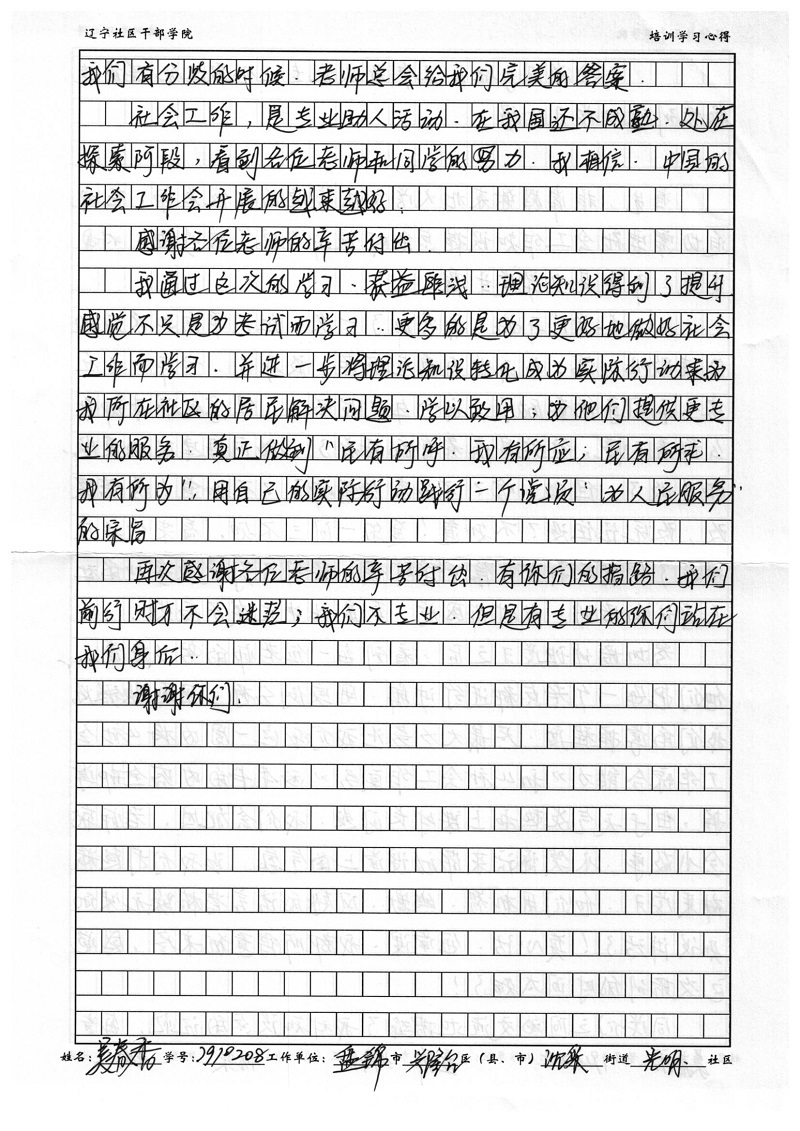 辽宁社区干部学院 培训学习心得
我们有分歧的时候.老师总会给我们完美的答案.
社会工作,是专业助人活动.在我国还不成熟.处在
探索阶段,看到各位老师和同学的努力.我相信.中国的
社会工作会开展的越来越好.
感谢各位老师的辛苦付出.
我通过这次的学习.获益匪浅..理论知识得到了提升
感觉不只是为考试而学习..更多的是为了更好地做好社会
工作而学习.并进一步将理论知识转化成为实际行动来为
我所在社区的居民解决问题.学以致用;为他们提供更专
业的服务.真正做到"民有所呼.我有所应;民有所求.
我有所为";用自己的实际行动践行一个党员"为人民服务"
的宗旨
再次感谢各位老师的辛苦付出.有你们的指路.我们
前行时才不会迷茫;我们不专业.但是有专业的你们站在
我们身后..
谢谢你们.
姓名: 学号: 工作单位:盘锦市兴隆台区(县、市) 街道光明.社区